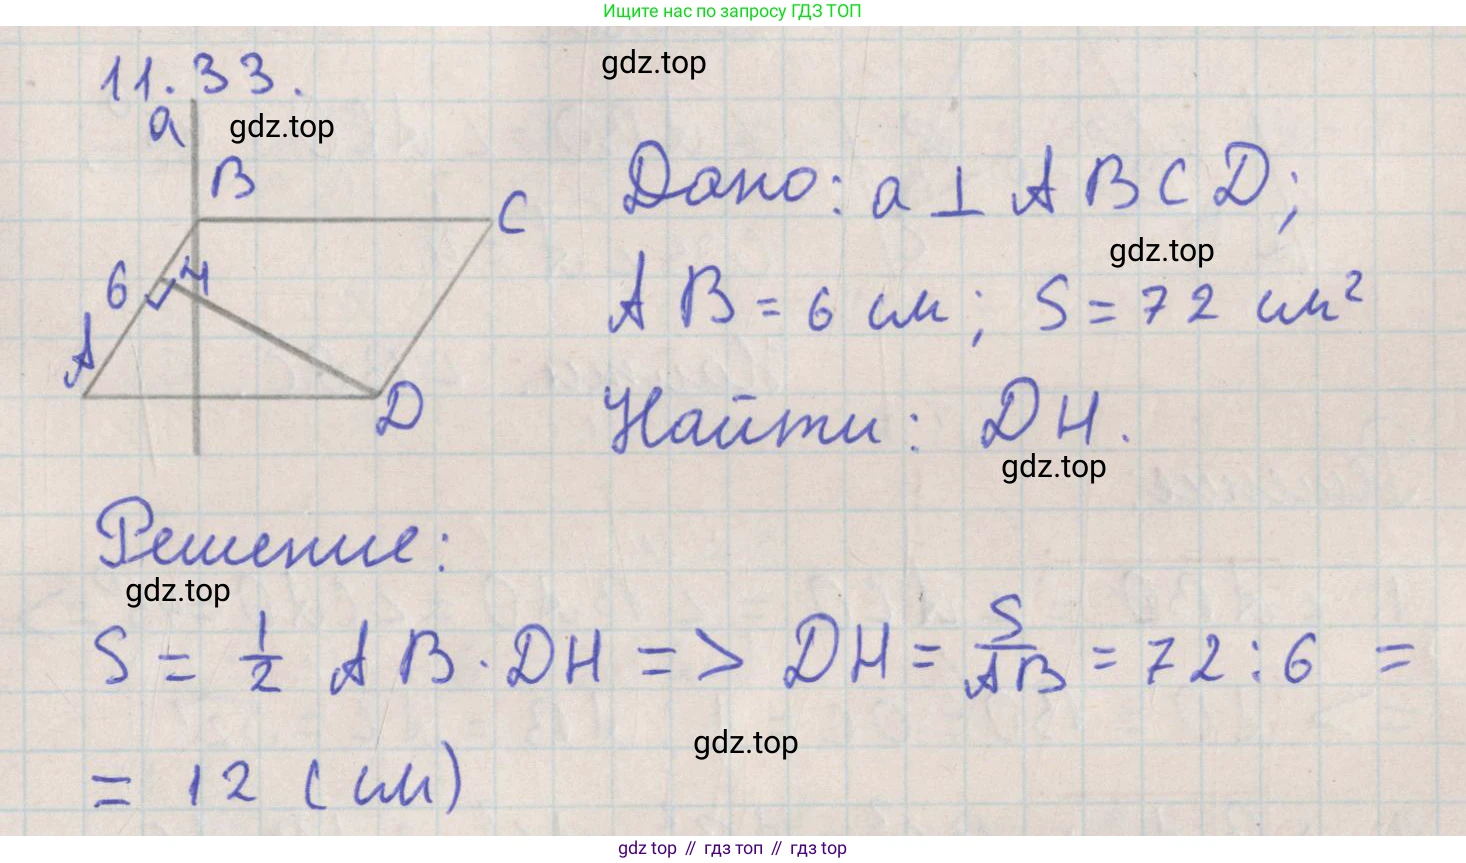 Ищите нас по запросу ГДЗ ТОП
11.33.
gdz.top
a
gdz.top
B
C
6
H
A
D
Дано: a ⊥ ABCD;
gdz.top
AB = 6 см; S = 72 см²
Найти: DH.
gdz.top
Решение:
gdz.top
S = 1/2 AB · DH => DH = S/AB = 72 : 6 =
gdz.top
= 12 (см)
gdz top // гдз топ // gdz top